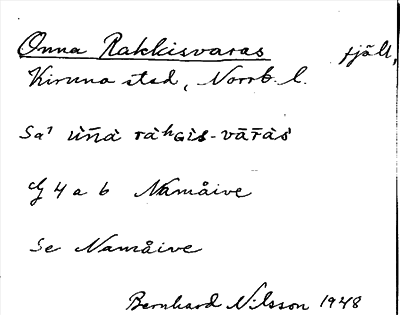 Onna Rakkisvaras fjäll,
Kiruna stad, Norrb. l.
Sa¹ ùn̄à ràʰGìs-vār̄às̀
4 a b Namåive
Se Namåive
Bernhard Nilsson 1948